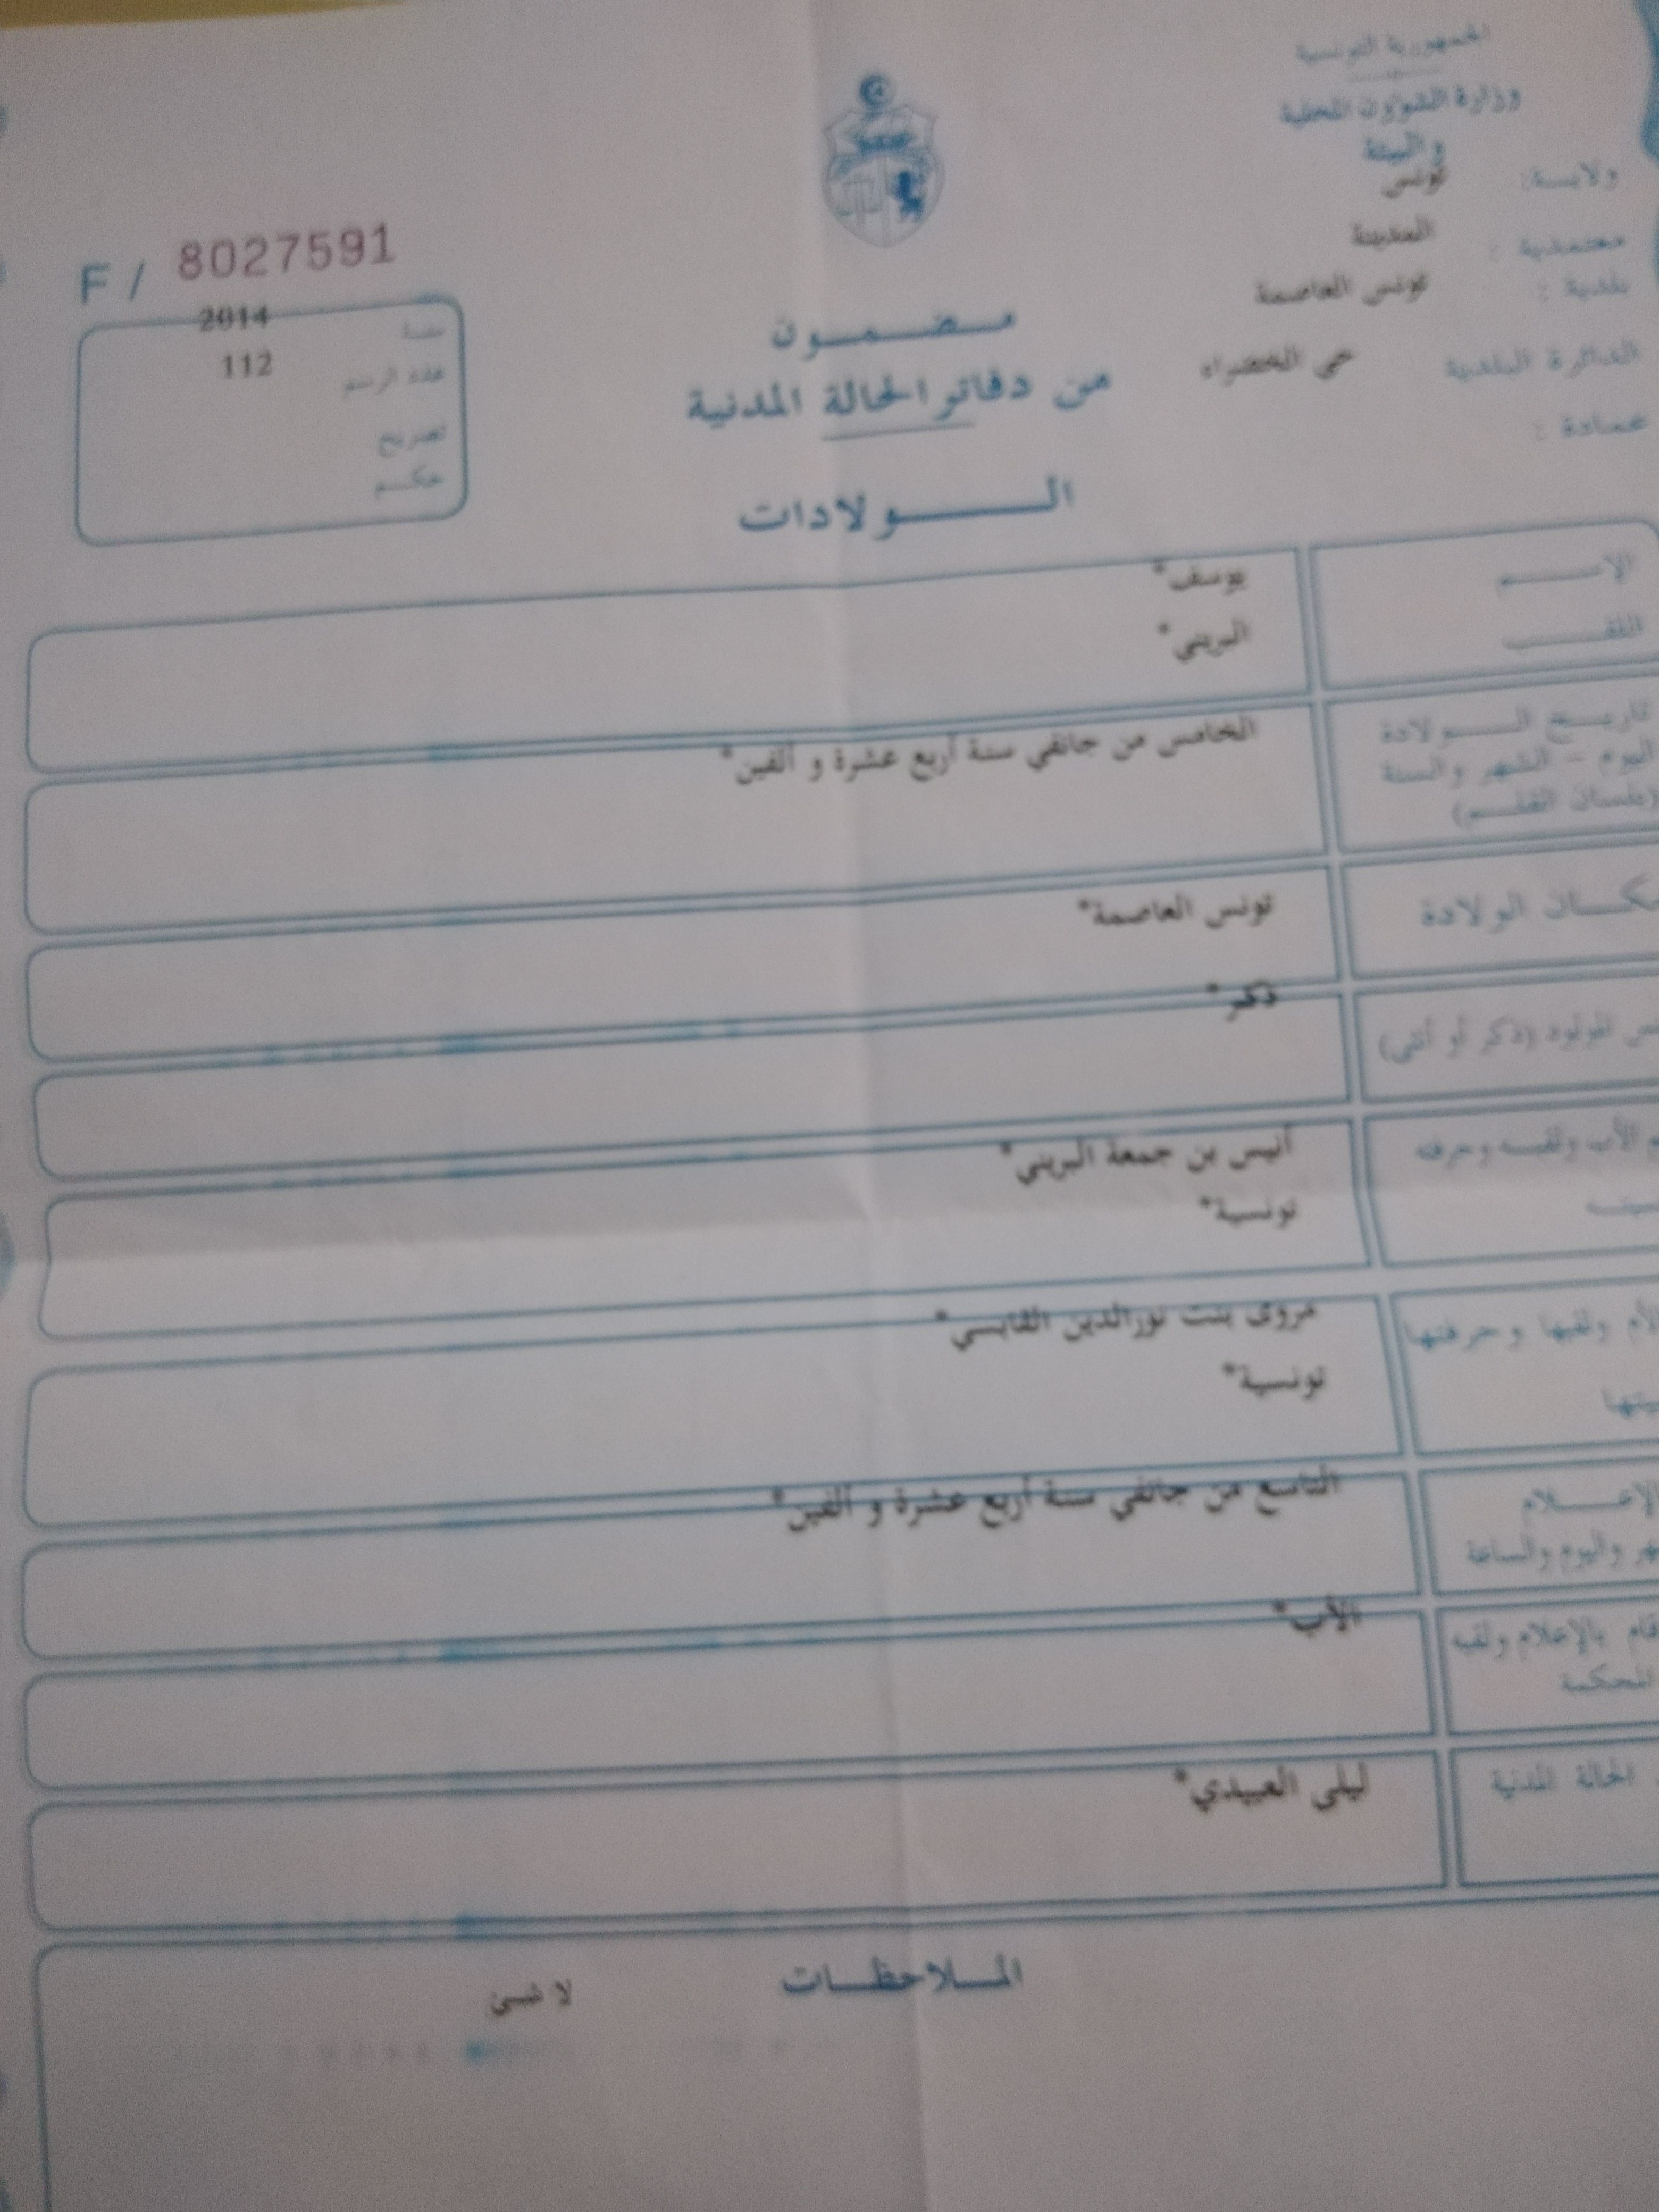 الجمهورية التونسية
وزارة الشؤون المحلية
والبيئة
ولايـــة: تونس
معتمدية : المدينة
بلدية : تونس العاصمة
الدائرة البلدية حي الخضراء
عمادة :
F / 8027591
سنة 2014
عدد الرسم 112
تصريح
حكم
مضمون
من دفاتر الحالة المدنية
الولادات
الاسم يوسف*
اللقب البريني*
تاريخ الولادة الخامس من جانفي سنة أربع عشرة و ألفين*
اليوم – الشهر والسنة
(بلسان القلم)
مكان الولادة تونس العاصمة*
ذكر*
المولود (ذكر أو أنثى)
الأب ولقبه وحرفته أنيس بن جمعة البريني*
تونسية*
الأم ولقبها وحرفتها مروى بنت نورالدين القابسي*
تونسية*
الإعلام التاسع من جانفي سنة أربع عشرة و ألفين*
واليوم والساعة
الأب*
قام بالإعلام ولقبه
المحكمة
الحالة المدنية ليلى العبيدي*
الملاحظات
لا شئ